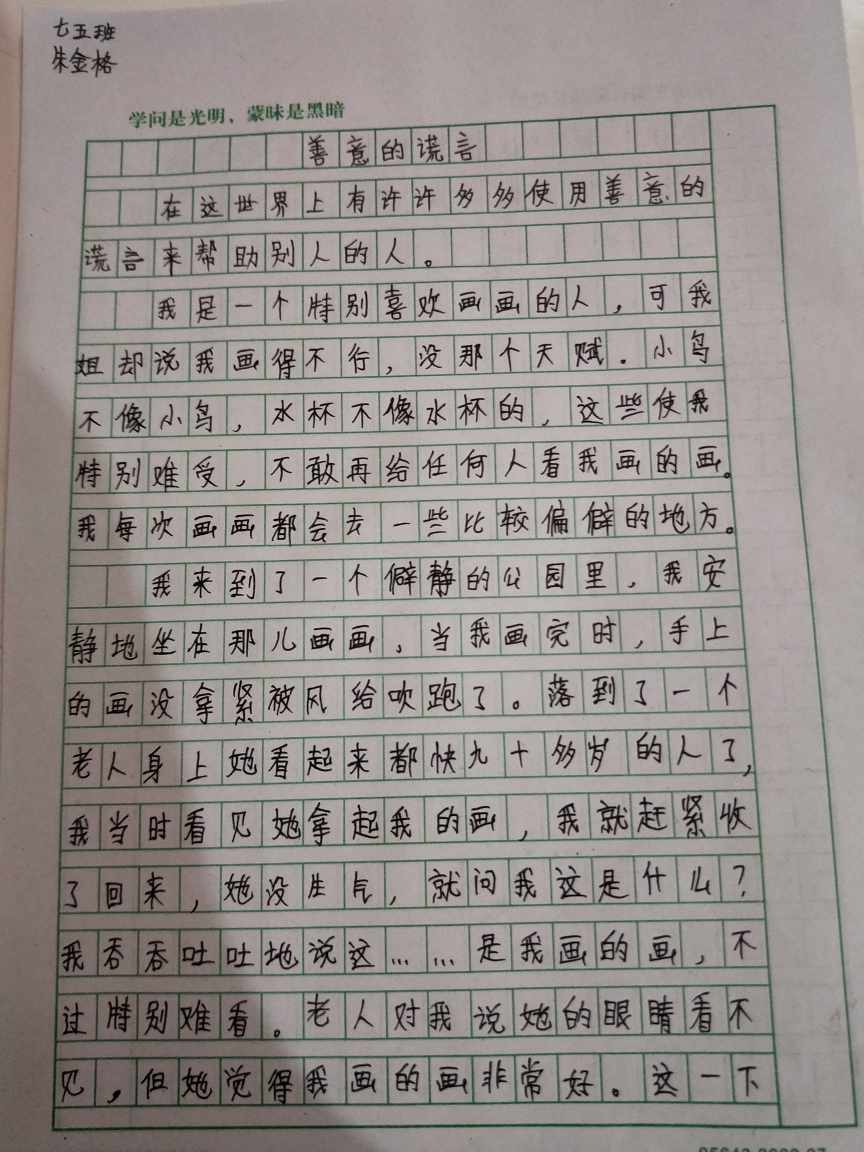 七五班
朱金格
学问是光明、蒙昧是黑暗
善意的谎言
在这世界上有许许多多使用善意的
谎言来帮助别人的人。
我是一个特别喜欢画画的人，可我
姐却说我画得不行，没那个天赋．小鸟
不像小鸟，水杯不像水杯的，这些使我
特别难受，不敢再给任何人看我画的画。
我每次画画都会去一些比较偏僻的地方。
我来到了一个僻静的公园里，我安
静地坐在那儿画画，当我画完时，手上
的画没拿紧被风给吹跑了。落到了一个
老人身上她看起来都快九十多岁的人了，
我当时看见她拿起我的画，我就赶紧收
了回来，她没生气，就问我这是什么？
我吞吞吐吐地说这……是我画的画，不
过特别难看。老人对我说她的眼睛看不
见，但她觉得我画的画非常好。这一下